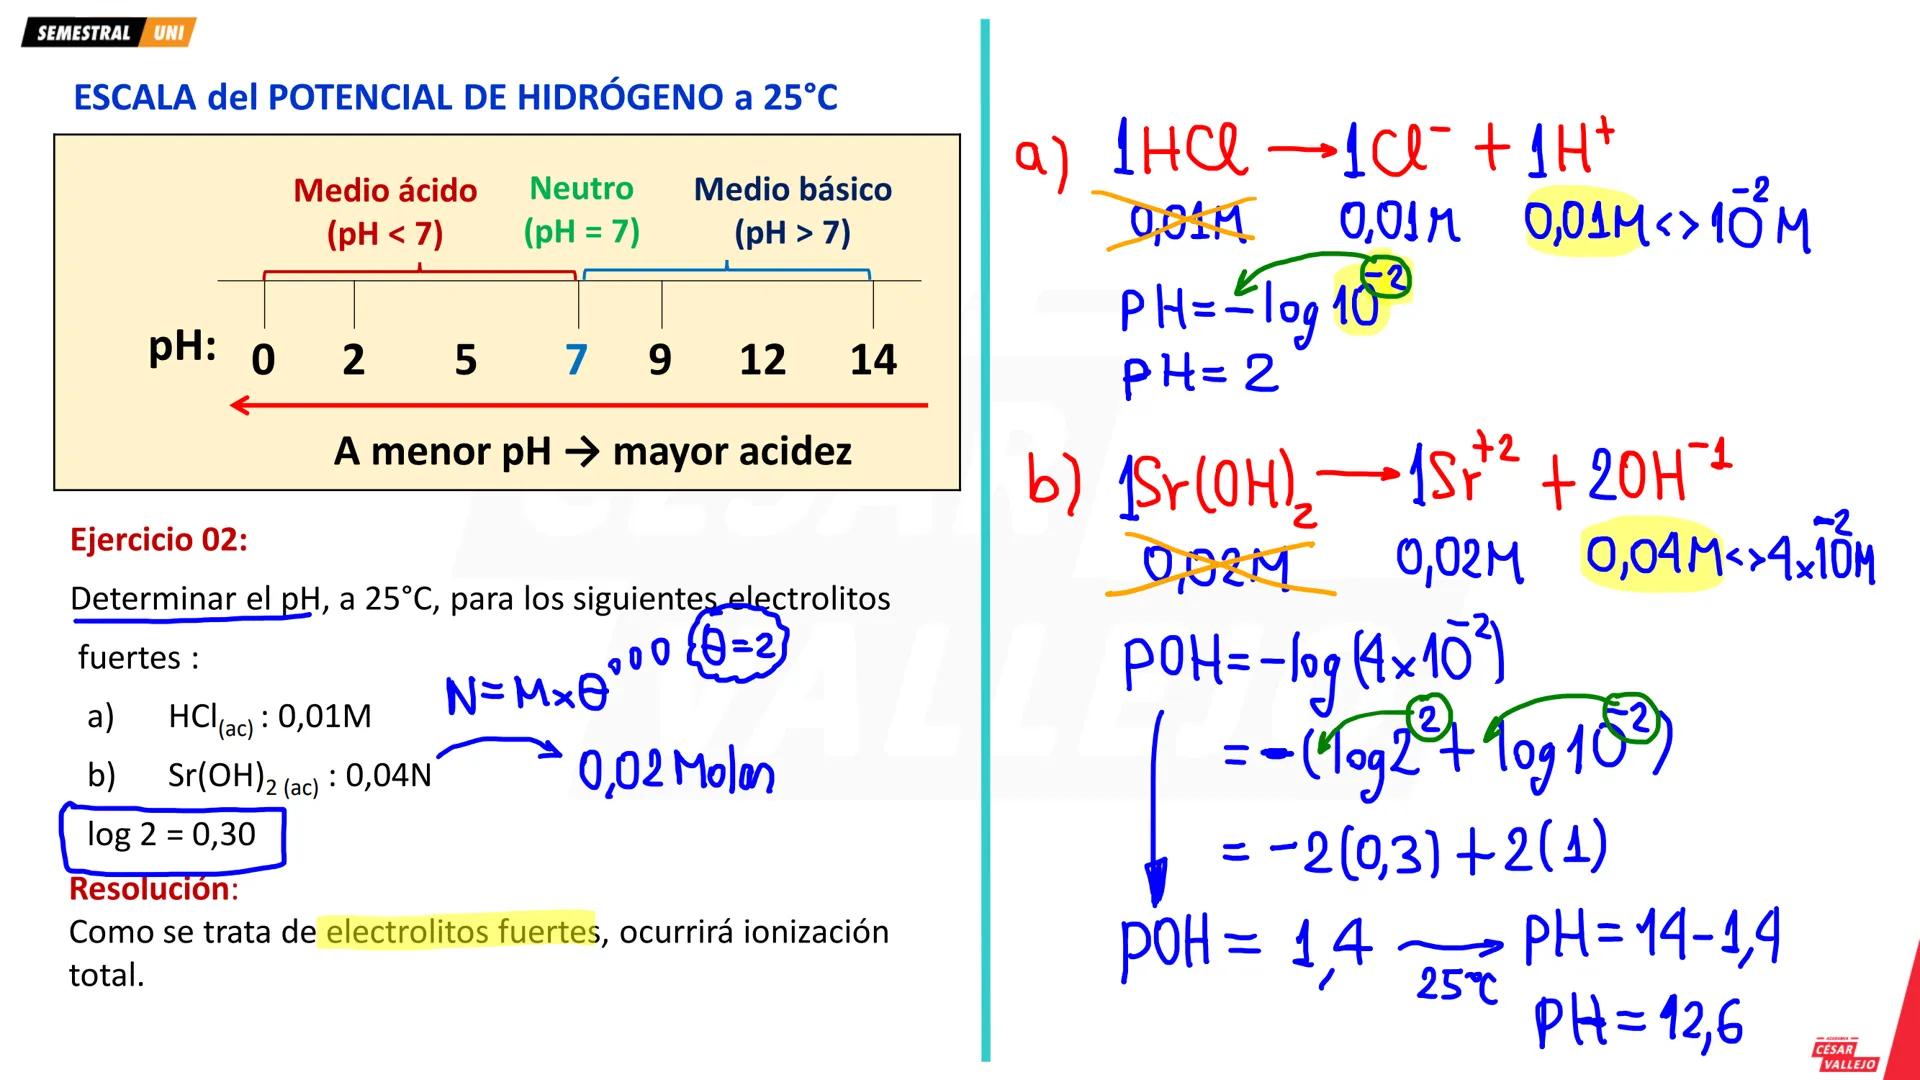 SEMESTRAL UNI
ESCALA del POTENCIAL DE HIDRÓGENO a 25°C
Medio ácido Neutro Medio básico
(pH < 7) (pH = 7) (pH > 7)
pH: 0 2 5 7 9 12 14
A menor pH → mayor acidez
Ejercicio 02:
Determinar el pH, a 25°C, para los siguientes electrolitos
fuertes :
N=M×θ θ=2
a) HCl(ac) : 0,01M
b) Sr(OH)2 (ac) : 0,04N
0,02 Molar
log 2 = 0,30
Resolución:
Como se trata de electrolitos fuertes, ocurrirá ionización
total.
a) 1HCl → 1Cl⁻ + 1H⁺
0,01M 0,01M 0,01M <> 10⁻² M
PH = -log 10⁻²
PH = 2
b) 1Sr(OH)₂ → 1Sr⁺² + 2OH⁻¹
0,02M 0,02M 0,04M <> 4×10⁻² M
POH = -log (4×10⁻²)
= -(log2² + log10⁻²)
= -2(0,3) + 2(1)
POH = 1,4 → 25°C PH = 14-1,4
PH = 12,6
ACADEMIA
CÉSAR
VALLEJO